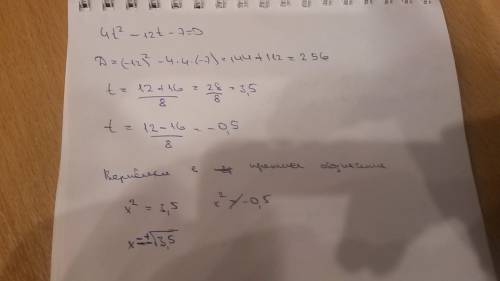 4t² - 12t - 7 = 0
D = (-12)² - 4·4·(-7) = 144 + 112 = 256
t = (12 + 16)/8 = 28/8 = 3,5
t = (12 - 16)/8 = -0,5
Вернёмся к прежним обозначениям
x² = 3,5 x² ≠ -0,5
x = ±√3,5